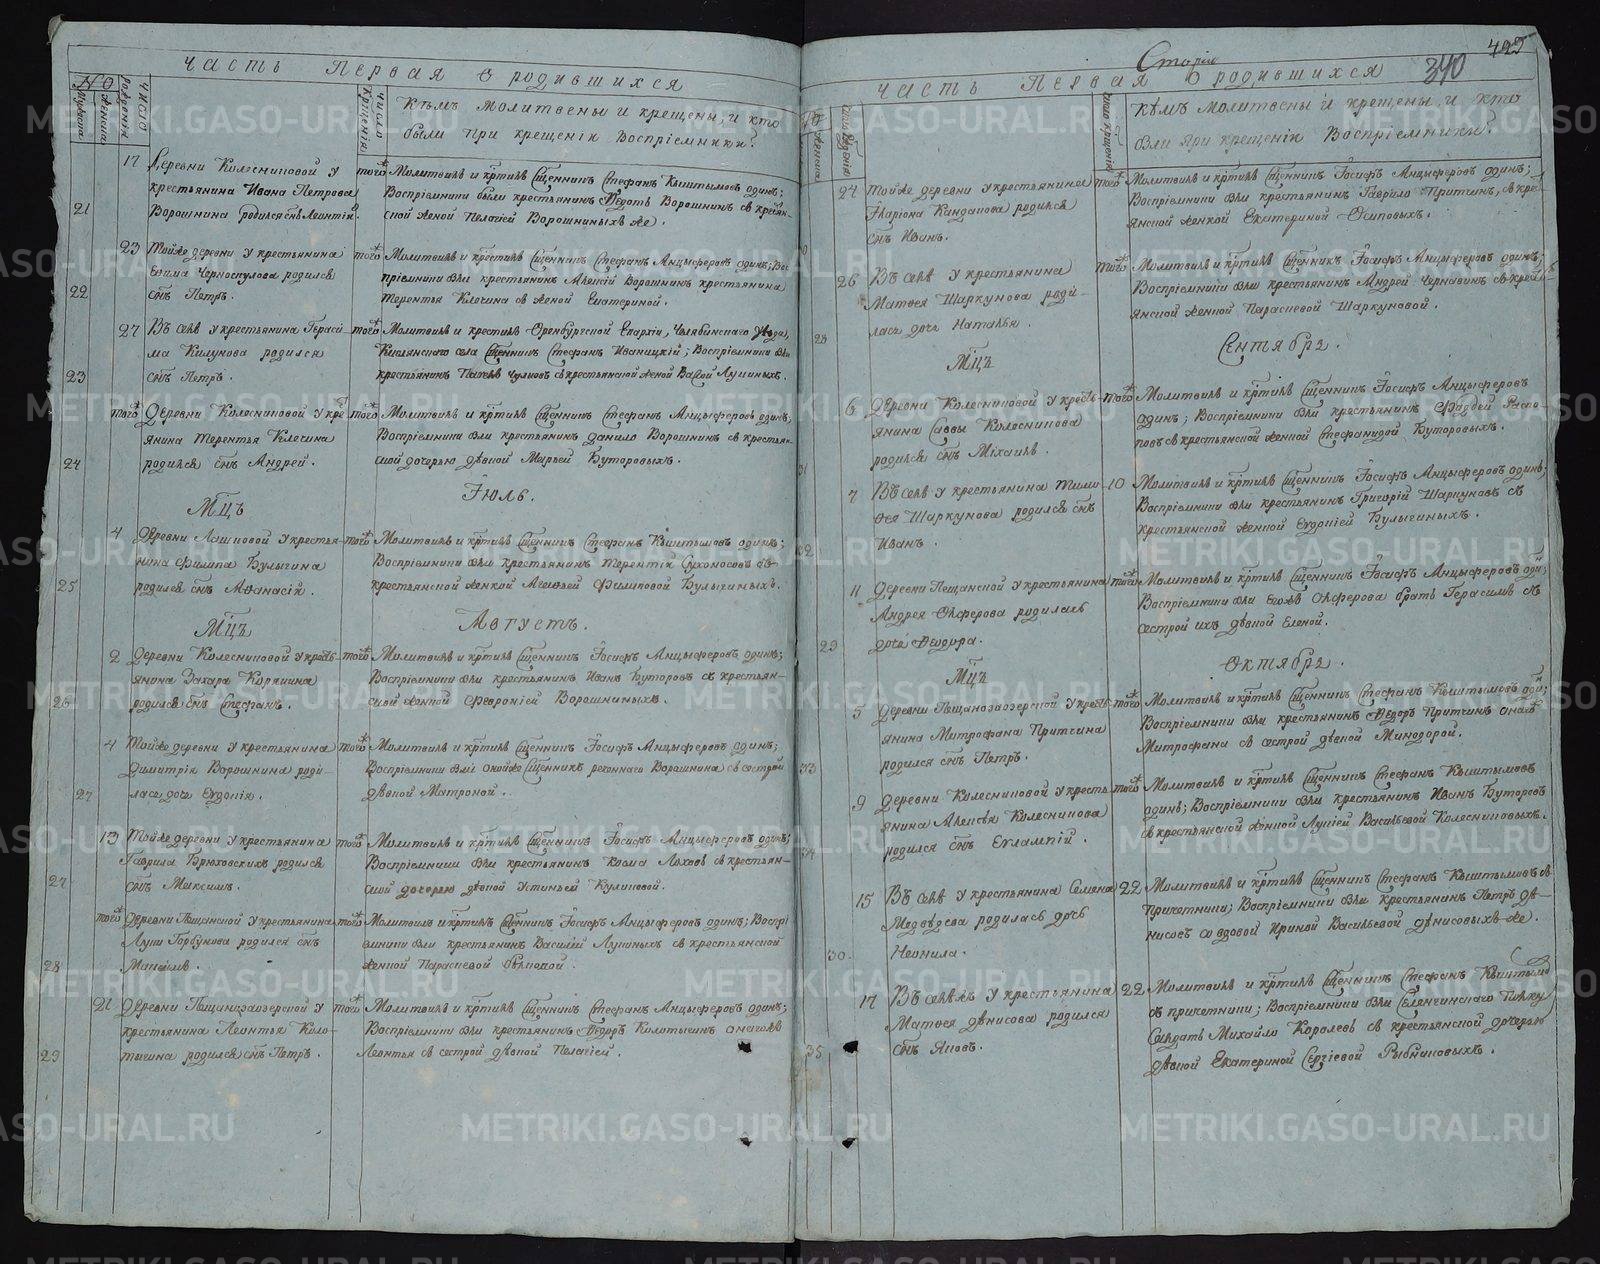 Часть Первая о родившихся
№
Мужеска
Женска
Число рожденія
Число крещенія
Кѣмъ молитвены и крещены, и кто
были при крещеніи воспріемники?
21
17
Деревни Колесниковой у
крестьянина Ивана Петрова
Ворошнина родился снъ Леонтій
того ж
Молитвилъ и кртилъ Сщенникъ Стефанъ Кыштымовъ одинъ;
Воспріемники были крестьянинъ Ѳедотъ Ворошнинъ съ крестьян-
ской женой Пелагіей Ворошниныхъ же.
22
23
Тойже деревни у крестьянина
Черноскулова родился
снъ Петръ.
того ж
Молитвилъ и кртилъ Сщенникъ Стефанъ Анцыферовъ одинъ; Вос
пріемники были крестьянинъ Алексій Ворошнинъ крестьянина
Терентья Клечина съ женой Екатериной.
23
27
Въ селѣ у крестьянина Гераси-
ма Килунова родился
снъ Петръ.
того ж
Молитвилъ и крестилъ Оренбургской Епархіи, Челябинскаго уѣзда,
села Сщенникъ Стефанъ Иваницкій; Воспріемники были
крестьянинъ съ крестьянской женой
24
того ж
Деревни Колесниковой у кре
янина Терентья Клечина
родился снъ Андрей.
того ж
Молитвилъ и кртилъ Сщенникъ Стефанъ Анцыферовъ одинъ;
Воспріемники были крестьянинъ Данило Ворошнинъ съ крестьян-
ской дочерью дѣвкой Марьей Буторовыхъ.
Мцъ
Іюль.
25
4
Деревни Лашковой у крестья-
нина Филипа Булыгина
родился снъ Аѳанасій.
того ж
Молитвилъ и кртилъ Сщенникъ Стефанъ Кыштымовъ одинъ;
Воспріемники были крестьянинъ Терентій Сухоносовъ съ
крестьянской женкой Агафьей Филиповой Булыгиныхъ.
Мцъ
Августъ.
26
2
Деревни Колесниковой у кресть-
янина Захара Корякина
родился снъ Стефанъ.
того ж
Молитвилъ и кртилъ Сщенникъ Іосифъ Анцыферовъ одинъ;
Воспріемники были крестьянинъ Иванъ Буторовъ съ крестьян-
ской женкой Февроніей Ворошниныхъ.
27
4
Тойже деревни у крестьянина
Димитрія Ворошнина роди-
лась дочь Евдокія.
того ж
Молитвилъ и кртилъ Сщенникъ Іосифъ Анцыферовъ одинъ;
Воспріемники были онойже Сщенникъ реченнаго Ворошнина съ сестрой
дѣвкой Матроной.
27
13
Тойже деревни у крестьянина
Гаврила Брюховскихъ родился
снъ Максимъ.
того ж
Молитвилъ и кртилъ Сщенникъ Іосифъ Анцыферовъ одинъ;
Воспріемники были крестьянинъ Козма Лоховъ съ крестьян-
ской дочерью дѣвкой Устиньей Куликовой.
28
того ж
Деревни Пещанской у крестьянина
Луки Горбунова родился снъ
Максимъ.
того ж
Молитвилъ и кртилъ Сщенникъ Іосифъ Анцыферовъ одинъ; Воспрі
емники были крестьянинъ Василій Лукиныхъ съ крестьянской
женкой Параскевой
29
21
Деревни Пещаноозерской у
крестьянина Леонтья Коло-
тыгина родился снъ Петръ.
того ж
Молитвилъ и кртилъ Сщенникъ Стефанъ Анцыферовъ одинъ;
Воспріемники были крестьянинъ Ѳедоръ Колотыгинъ
Леонтья съ сестрой дѣвкой Пелагіей.
Часть Первая о родившихся
340
495
Кѣмъ молитвены и крещены, и кто
были при крещеніи воспріемники?
24
Тойже деревни у крестьянина
Иларіона Кандакова родился
снъ Иванъ.
того ж
Молитвилъ и кртилъ Сщенникъ Іосифъ Анцыферовъ одинъ;
Воспріемники были крестьянинъ Гаврило Притчинъ, съ кресть-
янской женкой Екатериной Осиповыхъ.
28
26
Въ селѣ у крестьянина
Матвея Шаркунова роди-
лась дочь Наталья.
того ж
Молитвилъ и кртилъ Сщенникъ Іосифъ Анцыферовъ одинъ;
Воспріемники были крестьянинъ Андрей съ кресть-
янской женкой Параскевой Шаркуновой.
Мцъ
Сентябрь.
31
6
Деревни Колесниковой у кресть-
янина Саввы Колесникова
родился снъ Михаилъ.
того ж
Молитвилъ и кртилъ Сщенникъ Іосифъ Анцыферовъ
одинъ; Воспріемники были крестьянинъ Фадѣй Распо-
повъ съ крестьянской женкой Стефанидой Буторовыхъ.
32
7
Въ селѣ у крестьянина Тимо-
ѳея Шаркунова родился снъ
Иванъ.
10
Молитвилъ и кртилъ Сщенникъ Іосифъ Анцыферовъ одинъ;
Воспріемники были крестьянинъ Григорій Шаркуновъ съ
крестьянской женкой Евдокіей Булыгиныхъ.
29
11
Деревни Пещанской у крестьянина
Андрея Олферова родилась
дочь Ѳеодора.
того ж
Молитвилъ и кртилъ Сщенникъ Іосифъ Анцыферовъ одинъ;
Воспріемники были Олферова братъ Герасимъ съ
сестрой ихъ дѣвкой Еленой.
Мцъ
Октябрь.
33
5
Деревни Пещаноозерской у кресть-
янина Митрофана Притчина
родился снъ Петръ.
того ж
Молитвилъ и кртилъ Сщенникъ Стефанъ Кыштымовъ одинъ;
Воспріемники были крестьянинъ Ѳедоръ Притчинъ онаго ж
Митрофана съ сестрой дѣвкой Минодорой.
34
9
Деревни Колесниковой у кресть-
янина Алексѣя Колесникова
родился снъ Евлампій.
того ж
Молитвилъ и кртилъ Сщенникъ Стефанъ Кыштымовъ
одинъ; Воспріемники были крестьянинъ Иванъ Буторовъ
съ крестьянской женкой Лукіей Васильевой Колесниковыхъ.
30
15
Въ селѣ у крестьянина Семена
Медвѣдева родилась дочь
Неонила.
22
Молитвилъ и кртилъ Сщенникъ Стефанъ Кыштымовъ съ
причетники; Воспріемники были крестьянинъ Петръ Де-
нисовъ со вдовой Ириной Васильевой Денисовыхъ же.
35
17
Въ селѣ жъ у крестьянина
Матвея Денисова родился
снъ Яковъ.
22
Молитвилъ и кртилъ Сщенникъ Стефанъ Кыштымовъ
съ причетники; Воспріемники были Селенгинскаго Полку
Солдатъ Михайло Королевъ съ крестьянской дочерью
дѣвкой Екатериной Сергіевой Рыбниковыхъ.